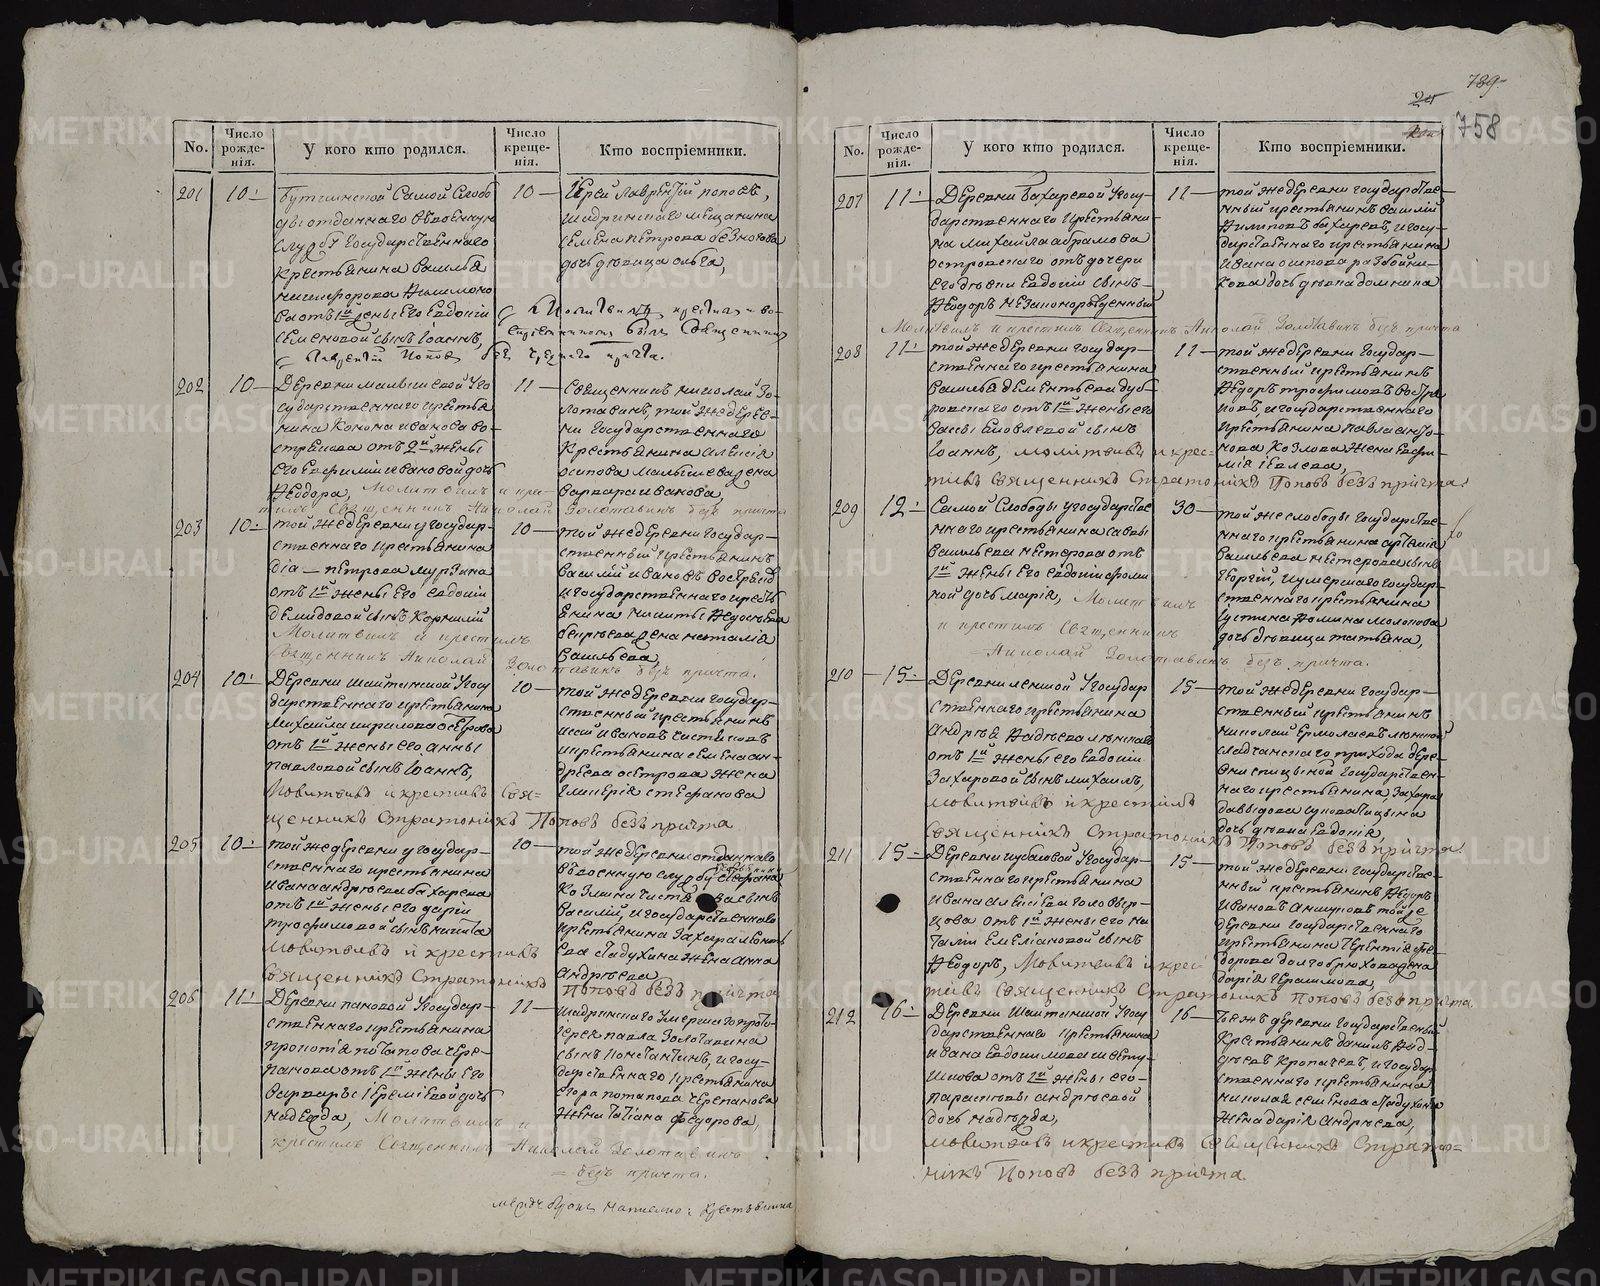 789
25
758
No.
Число рожде-нія.
У кого кто родился.
Число креще-нія.
Кто воспріемники.
201
10
Буткинской Самой Слобо
ды отданнаго въ военную
службу Государственнаго
Крестьянина Василья
никифорова
ва отъ 1й жены его Евдокіи
Семеновой сынъ Іоаннъ,
10
Іерей Лаврентій поповъ,
шадринскаго мещанина
Семена петрова безногова
дочь девица ольга,
Молитвилъ крестилъ и во-
спріемникомъ былъ Священникъ
Лаврентій Поповъ безъ причта.
202
10
Деревни малышевой Уго
сударственнаго крестья
нина Конона иванова во-
стрецова отъ 2й жены
его Евфиміи ивановой дочь
Ѳеодора, Молитвилъ и кре-
стилъ Священникъ Николай Золотавинъ безъ причта
11
Священникъ николай Зо-
лотавинъ, той же дерев-
ни Государственнаго
Крестьянина алексія
осипова малышева жена
варвара иванова,
203
10
той же деревни у государ-
ственнаго крестьянина
петрова мурзина
отъ 1й жены его Евдокіи
демидовой сынъ Корнилій
Молитвилъ и крестилъ
Священникъ Николай Золотавинъ безъ причта.
10
той же деревни государ-
ственный крестьянинъ
василій ивановъ востре
и государственнаго кресть
янина никиты
жена наталія
васильева,
204
10
Деревни шайтанской Угосу
дарственнаго крестьянина
михайла кирилова острова
отъ 1й жены его анны
павловой сынъ Іоаннъ,
Молитвивъ и крестивъ Свя=
щенникъ Стратоникъ Поповъ безъ причта
10
той же деревни государ-
ственный крестьянинъ
ивановъ чистяковъ
и крестьянина Семена ан-
дреева острова жена
Гликерія стефанова
205
10
той же деревни у государ-
ственнаго крестьянина
ивана андреева бахарева
отъ 1й жены его дарьи
трофимовой сынъ никита
Молитвивъ и крестивъ
Священникъ Стратоникъ
Поповъ безъ причта
10
той же деревни отданнаго
въ военную службу
Козмина чистя ва сынъ
василій, и государственнаго
крестьянина Захара леонть
ева ладухина жена анна
андреева
206
11
Деревни пановой Угосудар-
ственнаго крестьянина
прокопія потапова чере-
панова отъ 1й жены его
варвары Іеремеевой дочь
надежда, Молитвилъ и
крестилъ Священникъ Николай Золотавинъ
= безъ причта.
11
шадринскаго умершаго прото-
іерея павла Золотавина
сынъ Константинъ, и госу-
дарственнаго крестьянина
егора потапова черепанова
жена татіана Ѳедорова,
между строкъ написано: Крестьянина
No.
Число рожде-нія.
У кого кто родился.
Число креще-нія.
Кто воспріемники.
207
11
Деревни Бахаревой Угосу-
дарственнаго крестьяни-
на михайла абрамова
островскаго отъ дочери
его девки Евдокіи сынъ
Ѳеодоръ незаконорожденный
Молитвилъ и крестилъ Священникъ Николай Золотавинъ безъ причта
11
той же деревни государстве-
нный крестьянинъ василій
Филиповъ бахаревъ, и госу-
дарственнаго крестьянина
ивана осипова разбойни-
кова дочь девка домника
208
11
той же деревни государ-
ственнаго крестьянина
василья дементьева дуб-
ровскаго отъ 1й жены его
вассы Іовлевой сынъ
Іоаннъ, Молитвивъ и крес=
тивъ Священникъ Стратоникъ Поповъ безъ причта.
11
той же деревни Государ-
ственный крестьянинъ
Ѳедоръ трофимовъ востре
цовъ, и государственнаго
крестьянина павла анто-
нова Козлова жена Евфи-
мія Іевлева,
209
12
Самой Слободы у государстве
ннаго крестьянина саввы
васильева нестерова отъ
1й жены его Евдокіи фоми
ной дочь марія, Молитвилъ
и крестилъ Священникъ
Николай Золотавинъ безъ причта.
30
той же слободы государстве-
ннаго крестьянина артемія
васильева нестерова сынъ
георгій, и умершаго государ-
ственнаго крестьянина
Іустина Фомина молокова
дочь девица татьяна,
210
15
Деревни ленской Угосудар
ственнаго крестьянина
андрея Фадеева ленскаго
отъ 1й жены его Евдокіи
Захаровой сынъ михаилъ,
Молитвивъ и крестилъ
Священникъ Стратоникъ Поповъ безъ причта.
15
той же деревни государ-
ственный крестьянинъ
николай Ермолаевъ ленской
сладчанскаго прихода дере-
вни спицыной государствен-
наго крестьянина, Захара
давыдова суповатицына
дочь девки Евдокія
211
15
Деревни губановой Угосудар-
ственнаго крестьянина
ивана алексеева головыр-
цова отъ 1й жены его на
таліи Емеліановой сынъ
Ѳеодоръ, Молитвивъ и крес
тивъ Священникъ Стратоникъ Поповъ безъ причта.
15
той же деревни государстве-
нный крестьянинъ Ѳедоръ
ивановъ аникиновъ той же
деревни государственнаго
крестьянина терентія фе-
дорова долгобрюхова жена
дарія герасимова,
212
16
Деревни Шайтанской Угосу
дарственнаго крестьянина
ивана Евдокимова шевту-
шкова отъ 2й жены его
парасковьи андреевой
дочь надежда,
Молитвивъ и крестивъ Священникъ Страто=
никъ Поповъ безъ причта
16
тояжъ деревни государственый
Крестьянинъ данилъ Фад-
деевъ Кропачевъ, и государ
ственнаго крестьянина
николая семенова ладухина
жена дарія андреева,
METRIKI.GASO-URAL.RU